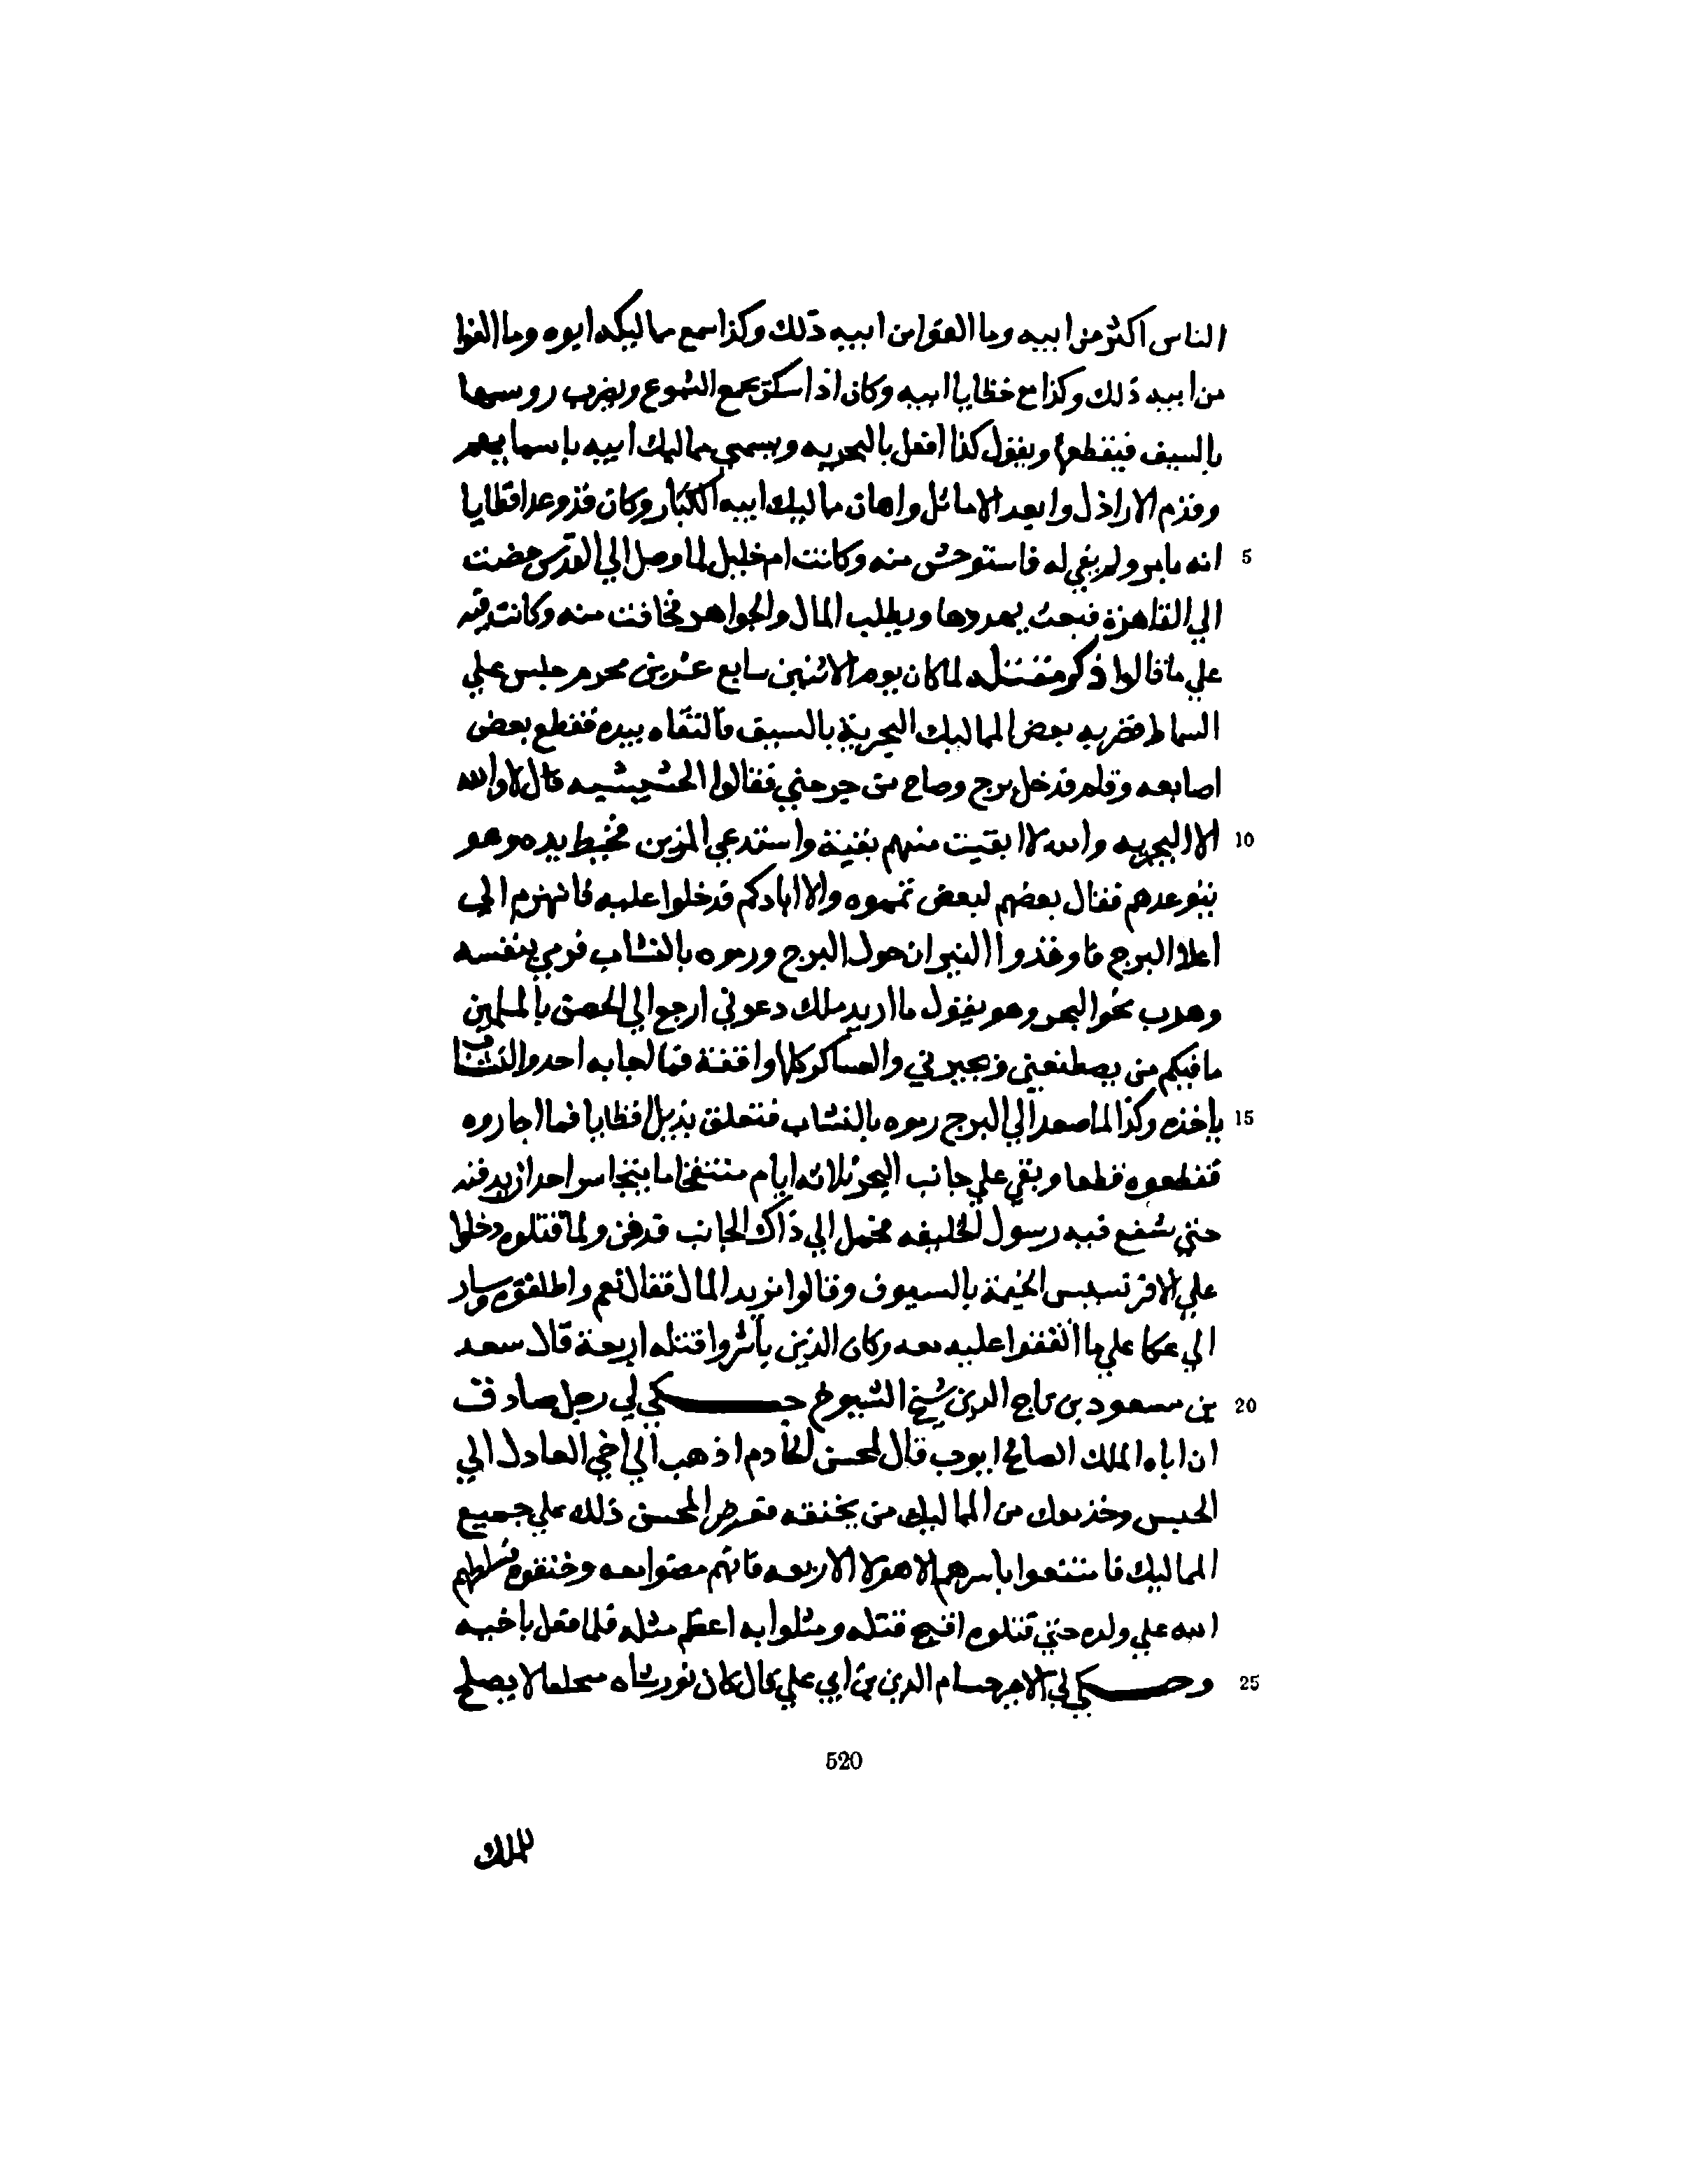 الناس اكثر من ابيه وما الفوا من ابيه ذلك وكذا سمع مماليكه ابوه وما الفوا
من ابيه ذلك وكذا مع حظايا ابيه وكان اذا سكر جمع الشموع ويضرب روسها
بالسيف فيقطعها ويقول كذا افعل بالبحريه ويسمي مماليك ابيه باسمايهم
وقدم الاراذل وابعد الاماثل واهان مماليك ابيه الكبار وكان قد وعد اقطايا
5 انه مابر ولم يفي له فاستوحش منه وكانت ام خليل لما وصل الي القدس مضت
الي القاهرة فبعث يهددها ويطلب المال والجواهر فخافت منه وكاتبت فيه
علي ما قالوا ذكر مقتله لما كان يوم الاثنين سابع عشرين محرم جلس علي
السماط فضربه بعض المماليك البحرية بالسيف فالتقاه بيده فقطع بعض
اصابعه وقام فدخل برج وصاح من جرحني فقالوا الحشيشيه قال لا والله
10 الا البحريه والله لا ابقيت منهم بقية واستدعي المزين فخيط يده وهو
يتوعدهم فقال بعضهم لبعض تمموه والا ابادكم فدخلوا عليه فانهزم الي
اعلا البرج فاوقدوا النيران حول البرج ورموه بالنشاب فرمي بنفسه
وهرب نحو البحر وهو يقول ما اريد ملك دعوني ارجع الي الحصن يا مسلمين
ما فيكم من يصطنعني ويجيرني والعساكر كلها واقفة فما اجابه احد والنشاب
15 ياخذه وكذا لما صعد الي البرج رموه بالنشاب فتعلق بذيل اقطايا فما اجاروه
فقطعوه قطعا وبقي علي جانب البحر ثلاثه ايام منتفخا ما يتجاسر احد ان يدفنه
حتي شفع فيه رسول الخليفه فحمل الي ذاك الجانب فدفن ولما قتلوه دخلوا
علي الافرنسيس الخيمة بالسيوف وقالوا نريد المال فقال نعم واطلقوه وسار
الي عكا علي ما اتفقوا عليه معه وكان الذين باشروا قتله اربعة قال سعد
20 بن مسعود بن تاج الدين شيخ الشيوخ حكي لي رجل صادق
ان اباه الملك الصالح ايوب قال لمحسن الخادم اذهب الي اخي العادل الي
الحبس وخذ معك من المماليك من يخنقه فعرض المحسن ذلك علي جميع
المماليك فامتنعوا باسرهم الا هولا الاربعه فانهم مضوا معه وخنقوه فسلطهم
الله علي ولده حتي قتلوه اقبح قتله ومثلوا به اعظم مثله فلما فعل باخيه
25 وحكي لي الامير حسام الدين بن ابي علي قال كان تورنشاه لا يصلح
520
للملك